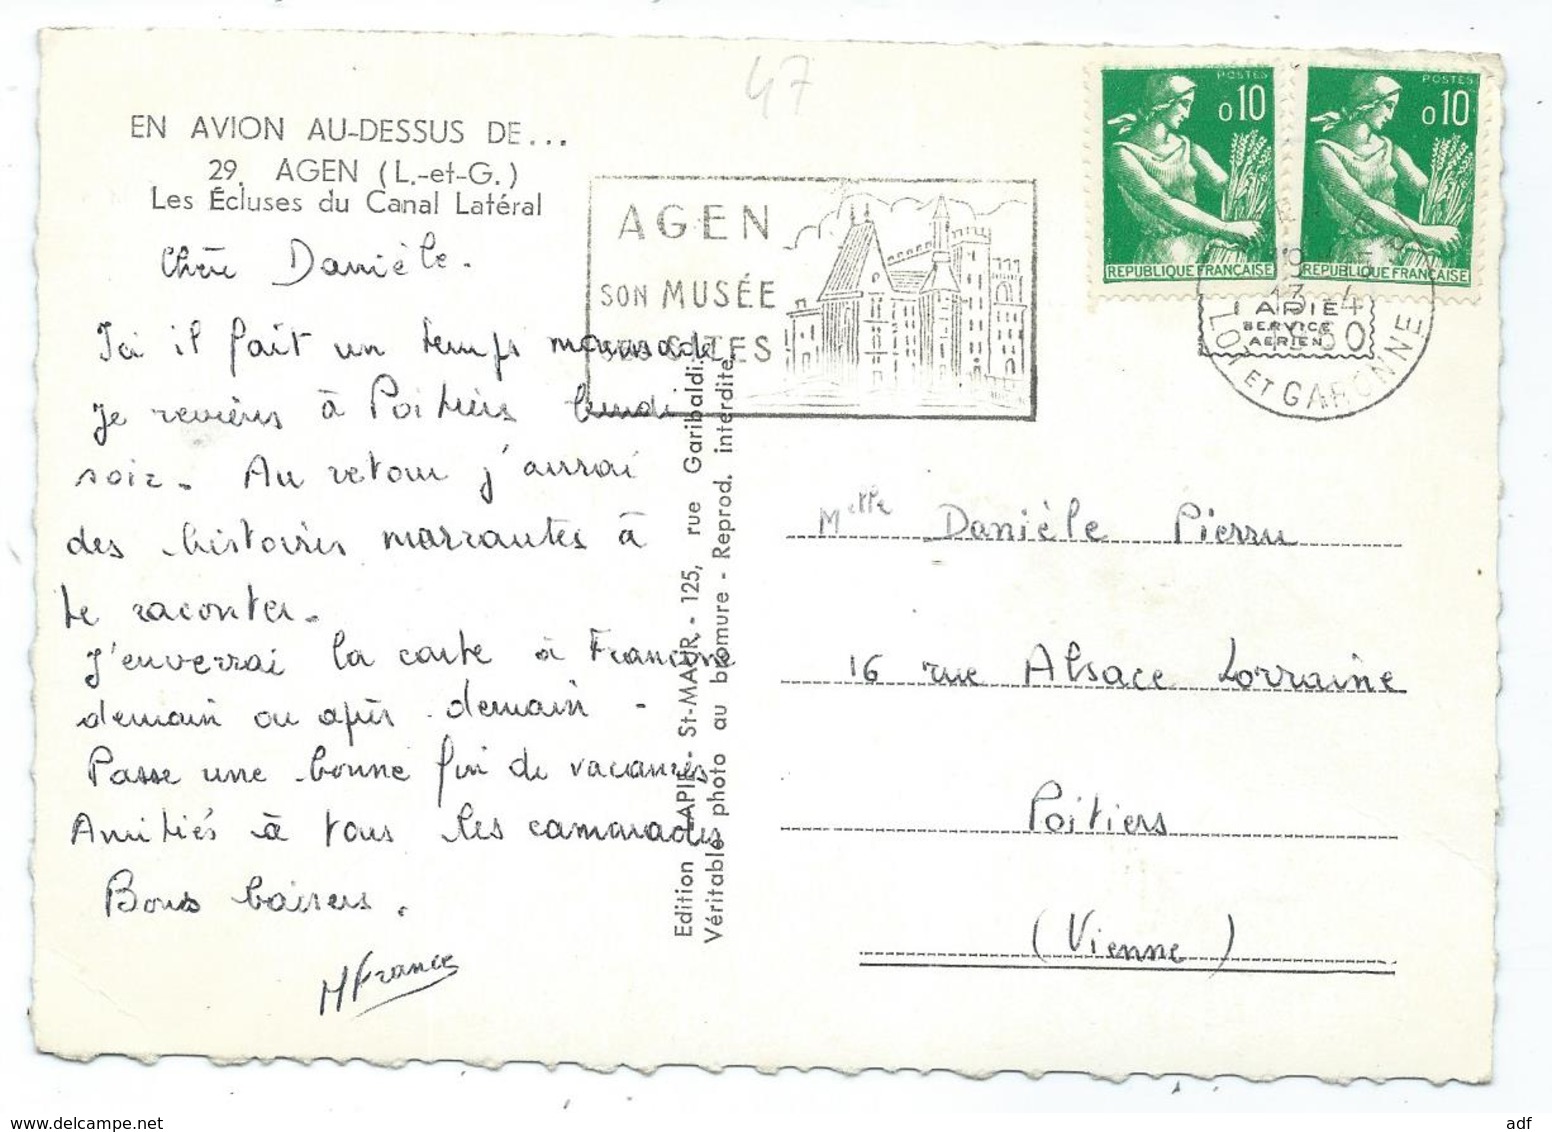 47
EN AVION AU-DESSUS DE...
29. AGEN (L.-et-G.)
Les Écluses du Canal Latéral
Chère Danièle.
Ici il fait un temps maussade.
Je reviens à Poitiers lundi
soir. Au retour j'aurai
des histoires marrantes à
te raconter.
J'enverrai la carte à Francine
demain ou après demain.
Passe une bonne fin de vacances
Amitiés à tous les camarades
Bons baisers.
MFrance
AGEN
SON MUSÉE
SES SITES
POSTES
0,10
REPUBLIQUE FRANÇAISE
POSTES
0,10
REPUBLIQUE FRANÇAISE
LAPIE
SERVICE
AERIEN
LOT ET GARONNE
Edition LAPIE - St-MAUR - 125, rue Garibaldi.
Véritable photo au bromure - Reprod. interdite.
Melle Danièle Pierru
16 rue Alsace Lorraine
Poitiers
(Vienne)
www.delcampe.net
adf